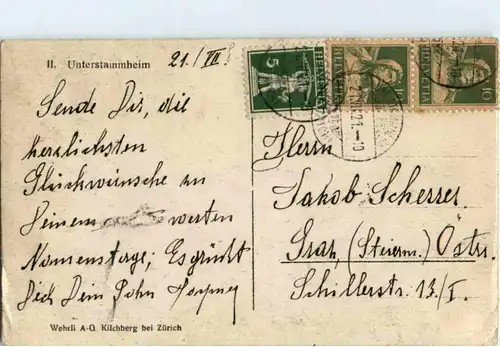 II. Unterstammheim
21./VII.
Sende Dir, die
herzlichsten
Glückwünsche zu
Deinem werten
Namenstage; Es grüßt
Dich Dein Sohn
Wehrli A-G. Kilchberg bei Zürich
HELVETIA 5
HELVETIA 10
HELVETIA 10
Herrn
Jakob Scherrer
Graz (Steierm.) Östr.
Schillerstr. 13/I.